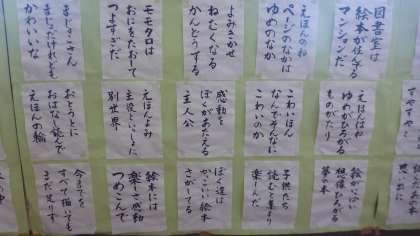 図書室は
絵本が住んでる
マンションだ
えほんの和
ページのなかは
ゆめのなか
よみきかせ
ねむくなる
かんどうする
モモタロは
おにをたおして
つよすぎだ
まじょこさん
まじょだけれども
かわいいな
えほんはね
ゆめがひろがる
ものがたり
こわいほん
なんでそんなに
こわいのか
感動を
ぼくがあたえる
主人公
えほんよみ
主役といっしょに
別世界
おとうとに
おはなし読んで
えほんの輪
絵がいっぱい
想像ひろがる
夢の本
子供たち
読むと集まり
楽しんだ
ぼく達は
かっこいい絵本
さがしてる
絵本には
楽しさ感動
つめこんで
今までを
すべて描いても
まだ足りず